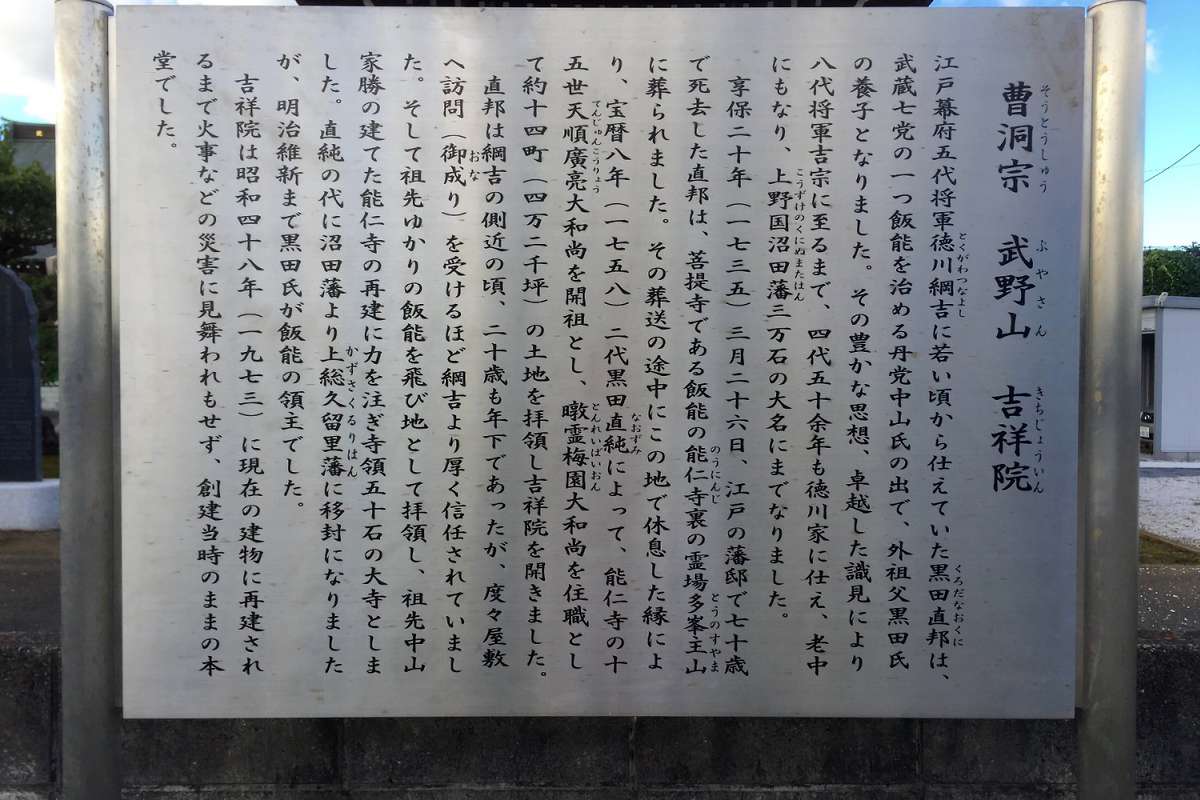 曹洞宗　武野山　吉祥院
そうとうしゅう　ぶやさん　きちじょういん
江戸幕府五代将軍徳川綱吉に若い頃から仕えていた黒田直邦は、
とくがわつなよし　くろだなおくに
武蔵七党の一つ飯能を治める丹党中山氏の出で、外祖父黒田氏
の養子となりました。その豊かな思想、卓越した識見により
八代将軍吉宗に至るまで、四代五十余年も徳川家に仕え、老中
にもなり、上野国沼田藩三万石の大名にまでなりました。
こうずけのくにぬまたはん
享保二十年（一七三五）三月二十六日、江戸の藩邸で七十歳
で死去した直邦は、菩提寺である飯能の能仁寺裏の霊場多峯主山
のうにんじ　とうのすやま
に葬られました。その葬送の途中にこの地で休息した縁によ
り、宝暦八年（一七五八）二代黒田直純によって、能仁寺の十
なおずみ
五世天順廣亮大和尚を開祖とし、暾霊梅園大和尚を住職とし
てんじゅんこうりょう　とんれいばいおん
て約十四町（四万二千坪）の土地を拝領し吉祥院を開きました。
直邦は綱吉の側近の頃、二十歳も年下であったが、度々屋敷
へ訪問（御成り）を受けるほど綱吉より厚く信任されていまし
おな
た。そして祖先ゆかりの飯能を飛び地として拝領し、祖先中山
家勝の建てた能仁寺の再建に力を注ぎ寺領五十石の大寺としま
した。直純の代に沼田藩より上総久留里藩に移封になりました
かずさくるりはん
が、明治維新まで黒田氏が飯能の領主でした。
吉祥院は昭和四十八年（一九七三）に現在の建物に再建され
るまで火事などの災害に見舞われもせず、創建当時のままの本
堂でした。